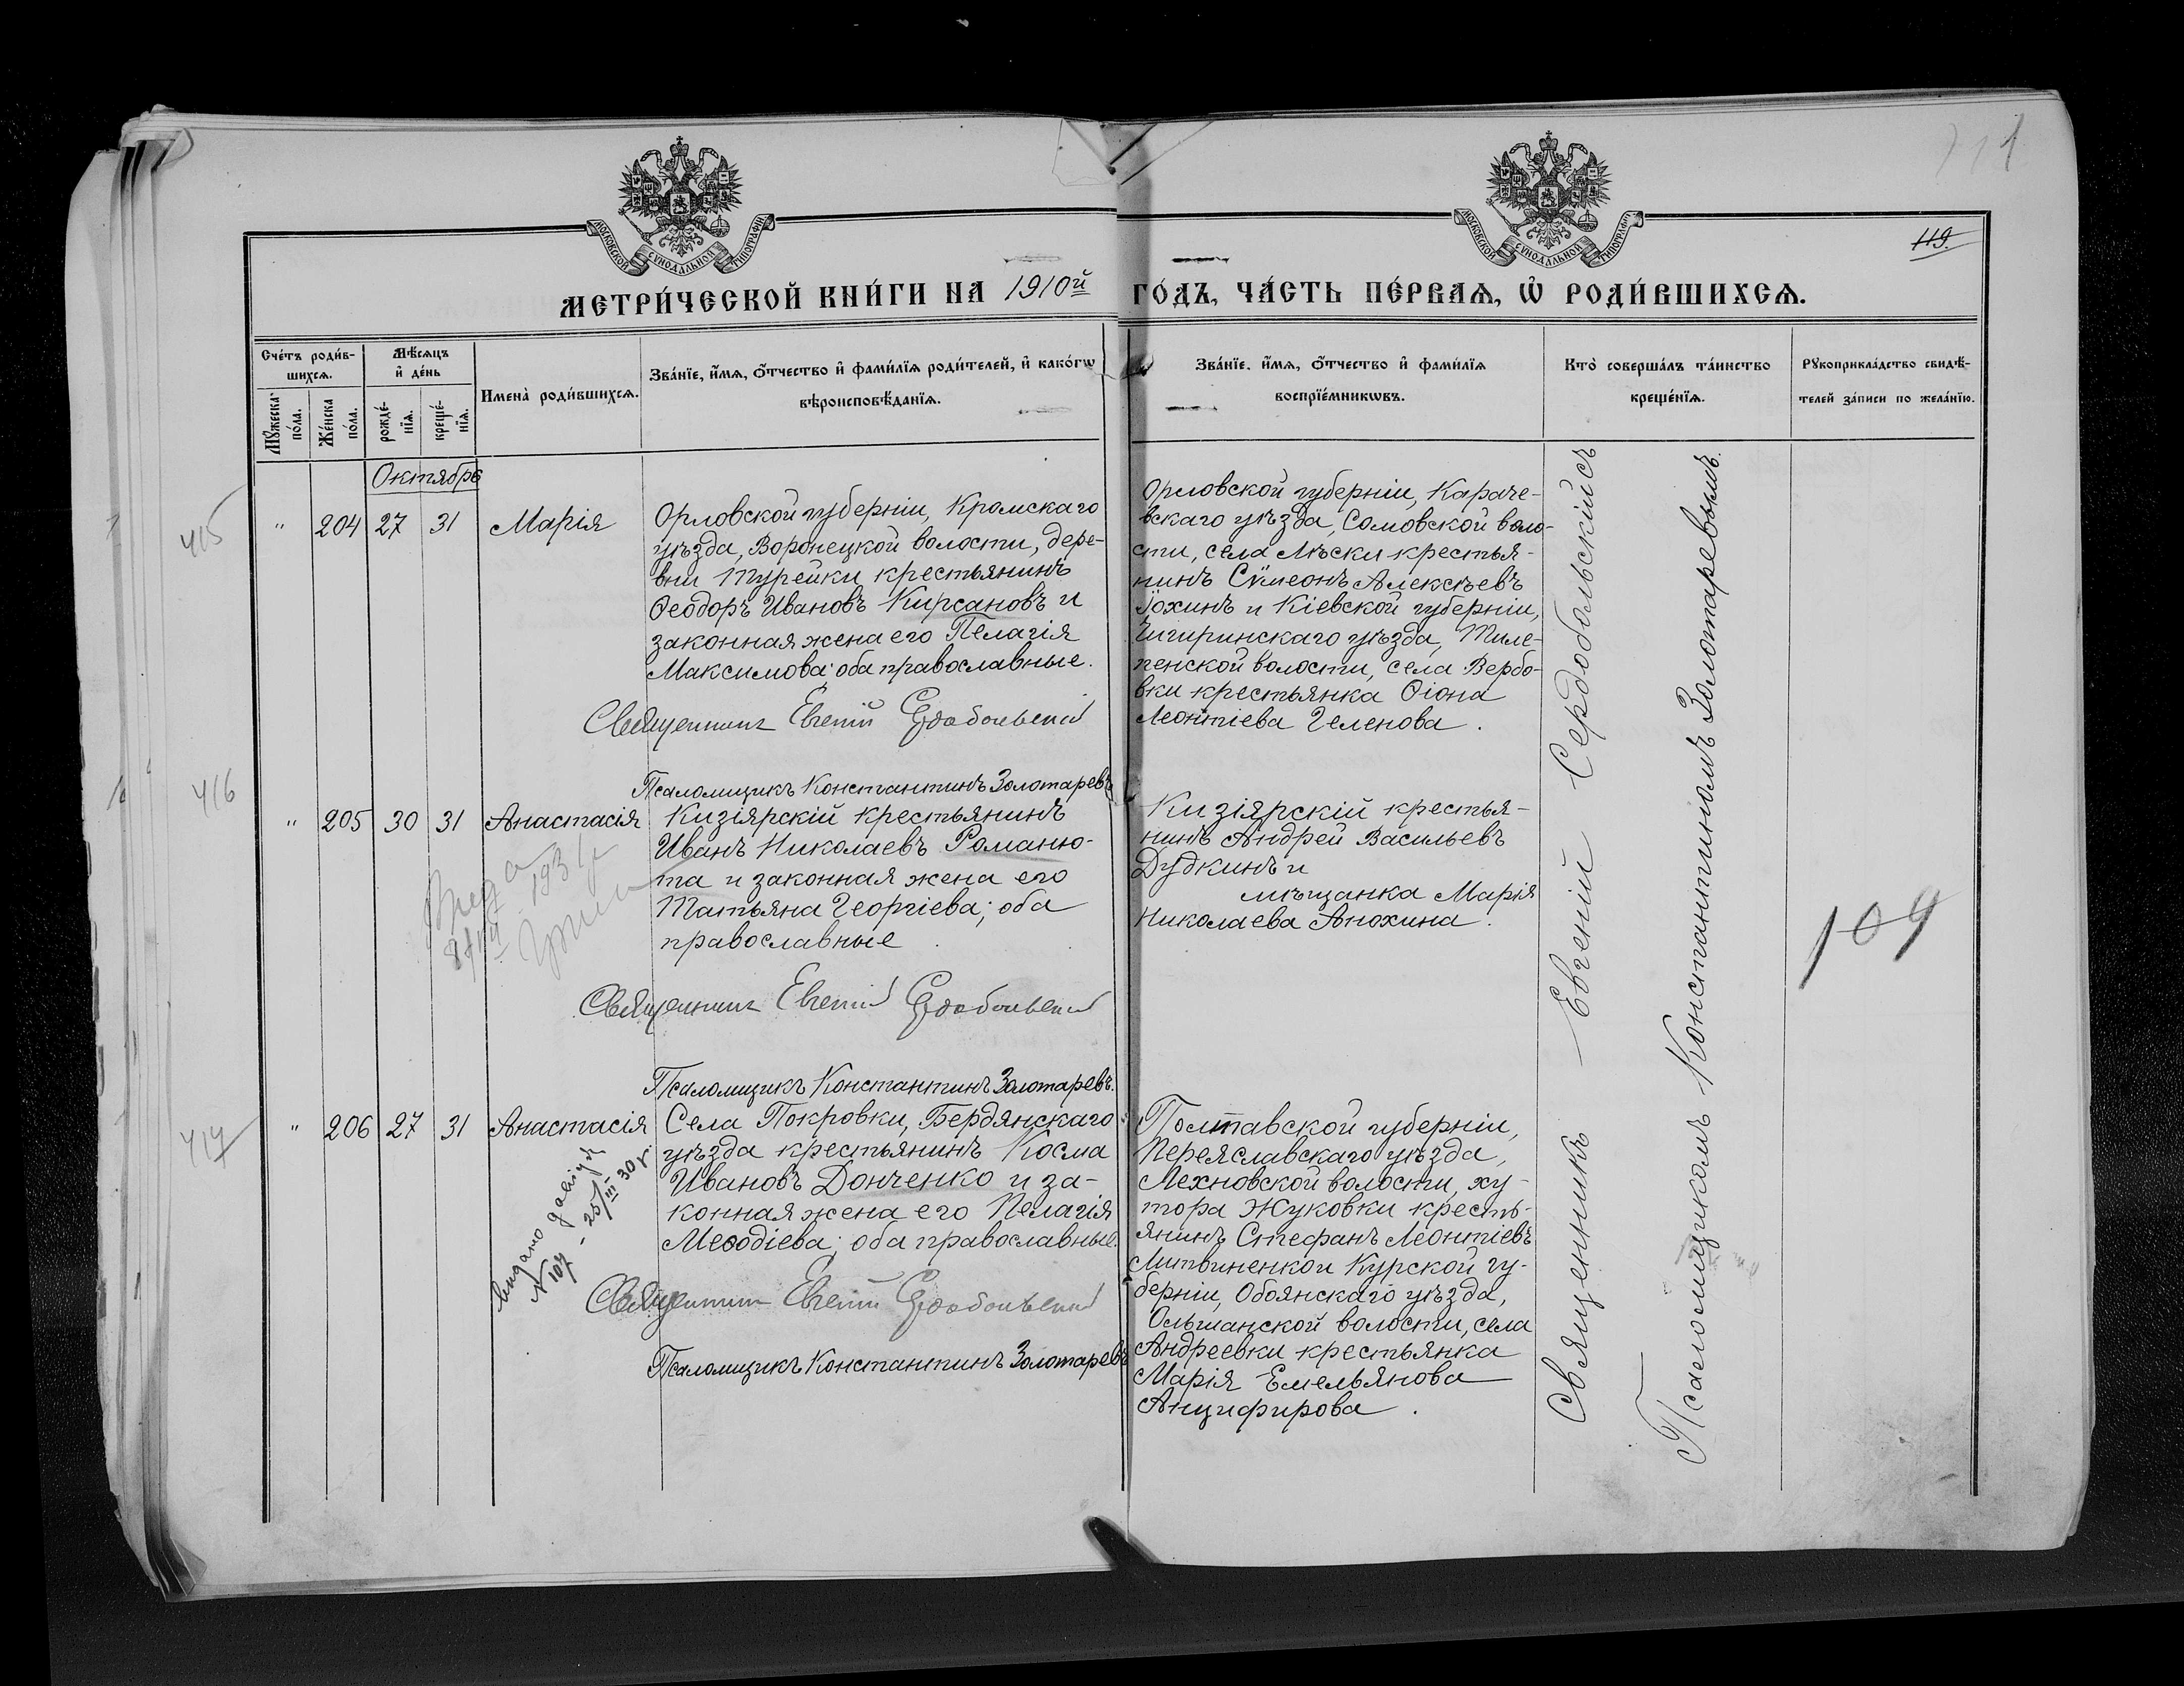 111
119.
МОСКОВСКОЙ СѴНОДАЛЬНОЙ ТИПОГРАФІИ
МОСКОВСКОЙ СѴНОДАЛЬНОЙ ТИПОГРАФІИ
МЕТРИ́ЧЕСКОЙ КНИ́ГИ НА 1910й ГО́ДЪ, ЧА́СТЬ ПЕ́РВАѦ, Ѡ҆ РОДИ́ВШИХСѦ.
Сче́тъ роди́в-
шихсѧ.
Мѣ́сѧцъ
и҆ де́нь
Мꙋ́жеска
по́ла.
Же́нска
по́ла.
рожде́-
нїѧ.
креще́-
нїѧ.
Имена̀ роди́вшихсѧ.
Зва́нїе, и҆́мѧ, ѻ҆́тчество и҆ фами́лїѧ роди́телей, и҆ како́гѡ
вѣроисповѣ́данїѧ.
Зва́нїе, и҆́мѧ, ѻ҆́тчество и҆ фами́лїѧ
воспрїе́мникѡвъ.
Кто̀ соверша́лъ та́инство
креще́нїѧ.
Рꙋкоприкла́дство свидѣ́-
телей за́писи по жела́нїю.
Октябрь
415
" 204 27 31 Марія
Орловской губерніи, Кромскаго
уѣзда, Воронецкой волости, дере-
вни Турейки крестьянинъ
Ѳеодоръ Ивановъ Кирсановъ и
законная жена его Пелагія
Максимова; оба православные.
Священникъ Евгеній Сердобольскій
Псаломщикъ Константинъ Золотаревъ
Орловской губерніи, Караче-
вскаго уѣзда, Сомовской воло-
сти, села Лѣски крестья-
нинъ Сѵмеонъ Алексѣевъ
Іохинъ и Кіевской губерніи,
Чигиринскаго уѣзда, Тиле-
пенской волости, села Вербо-
вки крестьянка Ѳіона
Леонтіева Геленова.
416
" 205 30 31 Анастасія
Кизіярскій крестьянинъ
Иванъ Николаевъ Романю-
та и законная жена его
Татьяна Георгіева; оба
православные.
Священникъ Евгеній Сердобольскій
Псаломщикъ Константинъ Золотаревъ.
Кизіярскій крестья-
нинъ Андрей Васильевъ
Дудкинъ и
мѣщанка Марія
Николаева Анохина.
109
417
" 206 27 31 Анастасія
видано
N 107 - 25/III 30 г
Села Покровки, Бердянскаго
уѣзда крестьянинъ Косма
Ивановъ Донченко и за-
конная жена его Пелагія
Меѳодіева; оба православные.
Священникъ Евгеній Сердобольскій
Псаломщикъ Константинъ Золотаревъ
Полтавской губерніи,
Переяславскаго уѣзда,
Лехновской волости, ху-
тора Жуковки кресть-
янинъ Стефанъ Леонтіевъ
Литвиненко и Курской гу-
берніи, Обоянскаго уѣзда,
Ольшанской волости, села
Андреевки крестьянка
Марія Емельянова
Анцифирова.
Священникъ Евгеній Сердобольскій съ
Псаломщикомъ Константиномъ Золотаревымъ.